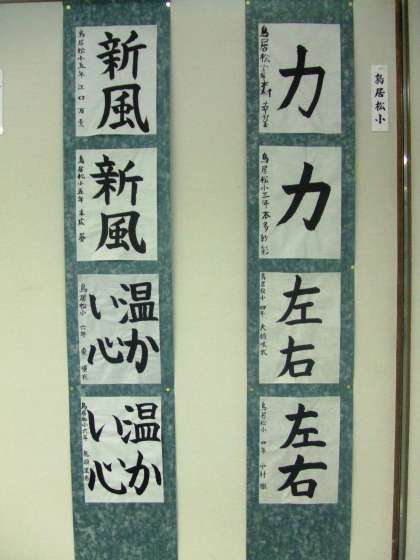 鳥居松小
力
鳥居松小三年
力
鳥居松小三年 本多
左右
鳥居松小 四年
左右
鳥居松小 四年 小村
新風
鳥居松小五年 江口
新風
鳥居松小五年
温か
い心
鳥居松小 六年
温か
い心
鳥居松小六年